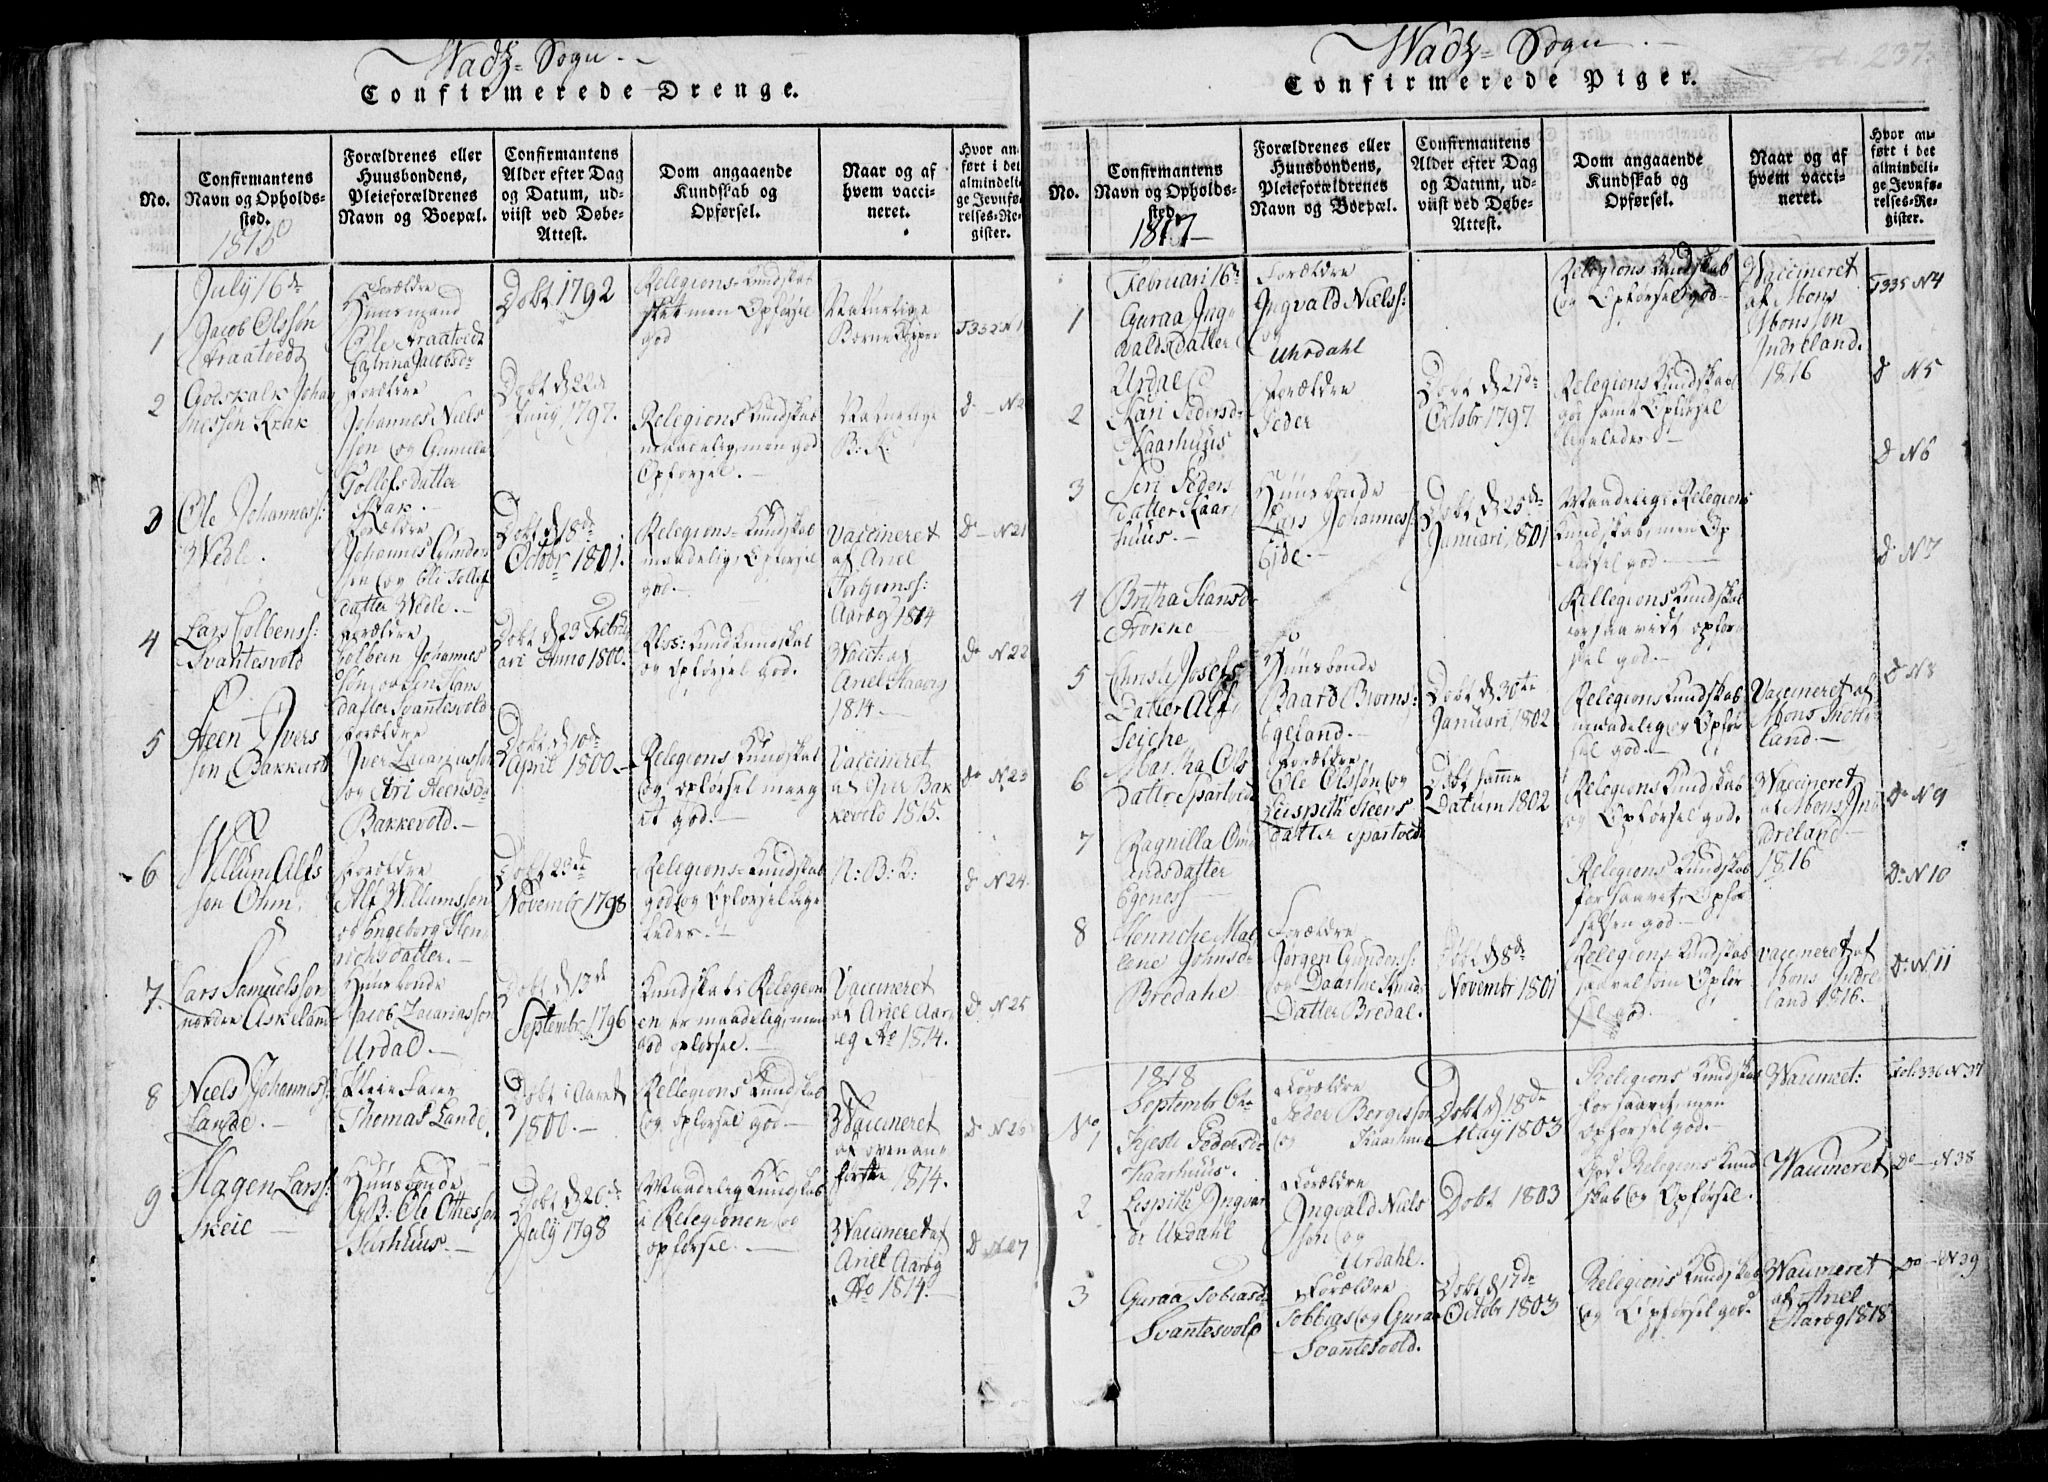 Wadz-Sogn
Confirmerede Drenge.
No.
Confirmantens
Navn og Opholds-
sted.
1815
Forældrenes eller
Huusbondens,
Pleieforældrenes
Navn og Boepæl.
Confirmantens
Alder efter Dag
og Datum, ud-
viist ved Døbe-
Attest.
Dom angaaende
Kundskab og
Opførsel.
Naar og af
hvem vacci-
neret.
Hvor an-
ført i det
almindeli-
ge Jevnfø-
relses-Re-
gister.
1
July 16de
Jacob Olssøn
Forældre
Huusmand
Døbt 1792
Religions-Kundskab
slet men Opførsel
god
Naturlige
Børne Kopper
2
Godskalk Johan
nissøn Krak
Forældre
Johannes Niels
søn og Gunnila
Tollefsdatter
Krak.
Døbt d 22de
Juny 1797.
Relegions Kundskab
maadelig, men god
Opførsel.
Naturlige
B: K:
3
Ole Johanness:
Wedle.
Forældre
Johannes Gunder
sen og Eli Tollef
datter Wedle.
Døbt d 18de
Octobr 1801.
Relegions-Kundskab
maadelig, Opførsel
god.
Vaccineret
af Ariel
Aarøg 1814
Do N 21
4
Lars Colbenss:
Svantesvold
Forældre
Colbein Johannes
datter Svantesvold
Døbt d 23 Febru
ari Anno 1800.
og Opførsel god.
Vacct: af
Ariel Aarøg
1814
Do N 22
5
Steen Ivers
søn Bakkevold
Forældre
Iver Zacariassøn
og Siri Steensdr
Bakkevold.
Døbt d 10de
April 1800.
Relegions Kundskab
og Opførsel meeg
et god.
Vaccineret
af Iver Bak
kevold 1815.
Do N 23
6
Willum Alfs
søn Ohm
Forældre
Alf Willumssøn
og Engeborg Hen
richsdatter.
Døbt 23de
Novembr 1798
Relegions-Kundskab
god og Opførsel lige
ledes.
N: B: K:
Do N 24.
7.
Lars Samuelssøn
nordre Askeland
Huusbonde
Jacob Zacariassøn
Urdal.
Døbt d 13de
Septembr 1796
Kundskab i Relegion
en er maadelig, men
god opførsel.
Vaccineret
af Ariel Aar
øg Ao 1814.
Do N 25
8
Niels Johanness:
Lande.
Pleie Fader
Thomas Lande.
Døbt i Aaret
1800.
Rellegions Kundskab
og Opførsel god.
Vaccineret
af ovenan
førte 1814.
Do N 26
9
Hagen Larss:
Skeie
Huusbonde
Ole Ottessøn
Døbt d 26de
July 1798
Maadelig Kundskab
i Relegionen og
opførsel.
Vaccineret af
Ariel Aarøg
Ao 1814.
Do N 27
Wadz-Sogn
Fol 237.
Confirmerede Piger.
No.
Confirmantens
Navn og Opholds-
sted.
1817
Forældrenes eller
Huusbondens,
Pleieforældrenes
Navn og Boepæl.
Confirmantens
Alder efter Dag
og Datum, ud-
viist ved Døbe-
Attest.
Dom angaaende
Kundskab og
Opførsel.
Naar og af
hvem vacci-
neret.
Hvor an-
ført i det
almindeli-
ge Jevnfø-
relses-Re-
gister.
1
Februari 16de
Guraa Ing
valdsdatter
Urdal
Forældre
Ingvald Nielss:
og
Uhrdahl
Relegions Kundskab
og Opførsel god
Vaccineret
af Mons
Monssøn
Indreland.
1816
F335 N4
2
Kari Pedersdr
Kaarhuus
Forældre
Peder
Døbt d 21de
Octobr 1797
Relegions Kundskab
god samt Opførsel
ligeledes
Do N5
3
Seri Peders
datter Kaar
huus.
Huusbonde
Lars Johanness:
Eide.
Døbt d 25de
Januari 1801
Maadelig Relegions
Kundskab, men Op
førsel god
Do N6
4
Britha Hansdr
Huusbonde
Rellegions Kundskab
forsaavidt opfør
sel god.
Do N7
5
Christi Josefs
Datter Alf
Seiche
Baard Biørns:
Egeland.
Døbt d 30te
Januari 1802
Relegions Kundskab
maadelig og Opfør
sel god.
Vaccineret af
Mons Indre
land.
Do N8
6
Martha Ols
datter Spartveidt
Forældre
Ole Olssøn og
Lispith Steens
datter Spartvedt
Døbt samme
Datum 1802
Relegions Kundskab
og Opførsel god.
Vaccineret
af Mons In
dreland
1816
Do N9
7
Ragnilla Om
undsdatter
Egenes
Relegions Kundskab
forsaavit, Opfør
selsen god
Do N10
8
Henriche Mal
lene Johnsdr
Bredahl
Forældre
Jørgen Gunderss:
og Daarthe Knud
Datter Bredal.
Døbt d 8de
Novembr 1801
Relegions Kundskab
saavelsom Opfør
sel god.
vaccineret af
Mons Indre
land 1816.
Do N. 11
1818
No 1
Septembr 6te
Kjesti Pedersdr
Kaarhuus.
Forældre
Peder Børgessøn
og Kaarhuus
Døbt d 18de
May 1803
Relegions Kundskab
forsaavit, men
opførsel god.
Vaccineret:
Fol: 336 N37
2
Lispitha Ingvar
dr Urdahl
Forældre
Ingvald Niels
søn og
Urdahl.
Døbt 1803
God Relegions Kund
skab og Opførsel.
Vaccineret
Do N38
3
Guraa Tobiasdr
Svantesvold
Forældre
Tobbias og Guraa
Svantesvold.
Døbt d 17de
Octobr 1803
Relegions Kundskab
og Opførsel god.
Vaccineret
af Ariel
Aarøg 1818
Do N39